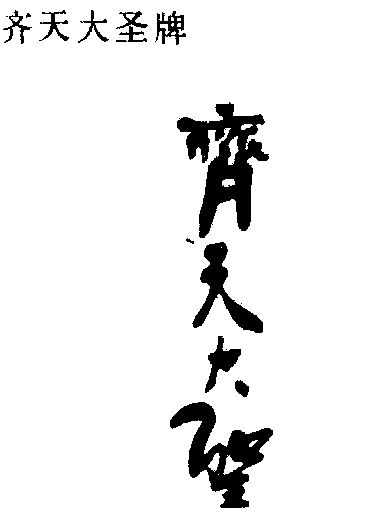 齐天大圣牌
齊天大聖